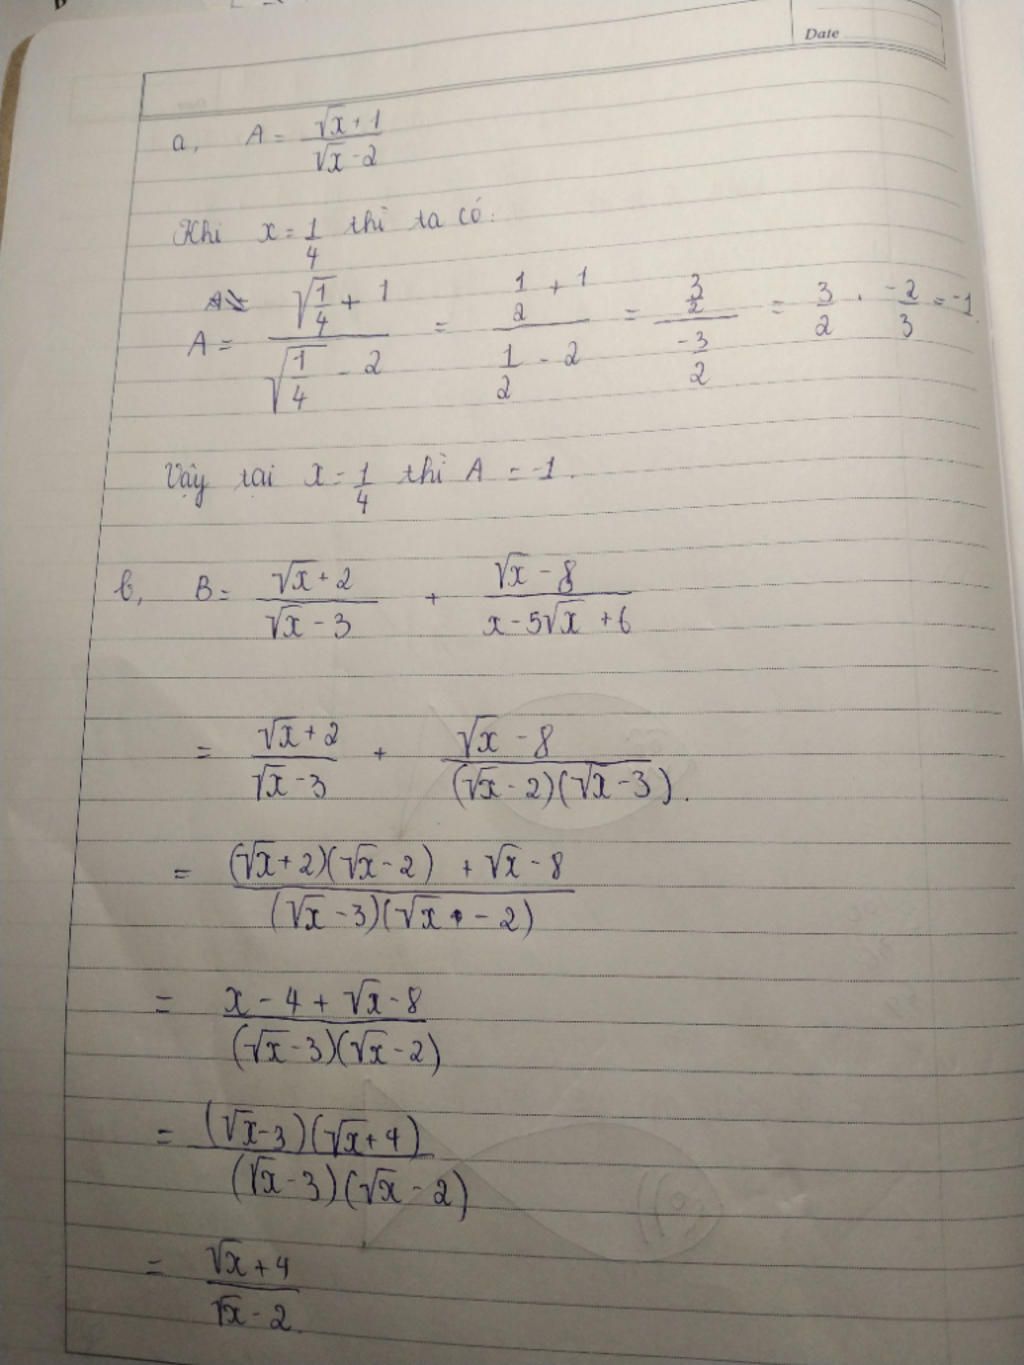 Date
a, A = (√x + 1)/(√x - 2)
Khi x = 1/4 thì ta có:
A = (√(1/4) + 1)/(√(1/4) - 2) = (1/2 + 1)/(1/2 - 2) = (3/2)/(-3/2) = 3/2 . -2/3 = -1.
Vậy tại x = 1/4 thì A = -1.
b, B = (√x + 2)/(√x - 3) + (√x - 8)/(x - 5√x + 6)
= (√x + 2)/(√x - 3) + (√x - 8)/((√x - 2)(√x - 3)).
= ((√x + 2)(√x - 2) + √x - 8)/((√x - 3)(√x - 2))
= (x - 4 + √x - 8)/((√x - 3)(√x - 2))
= ((√x - 3)(√x + 4))/((√x - 3)(√x - 2))
= (√x + 4)/(√x - 2).